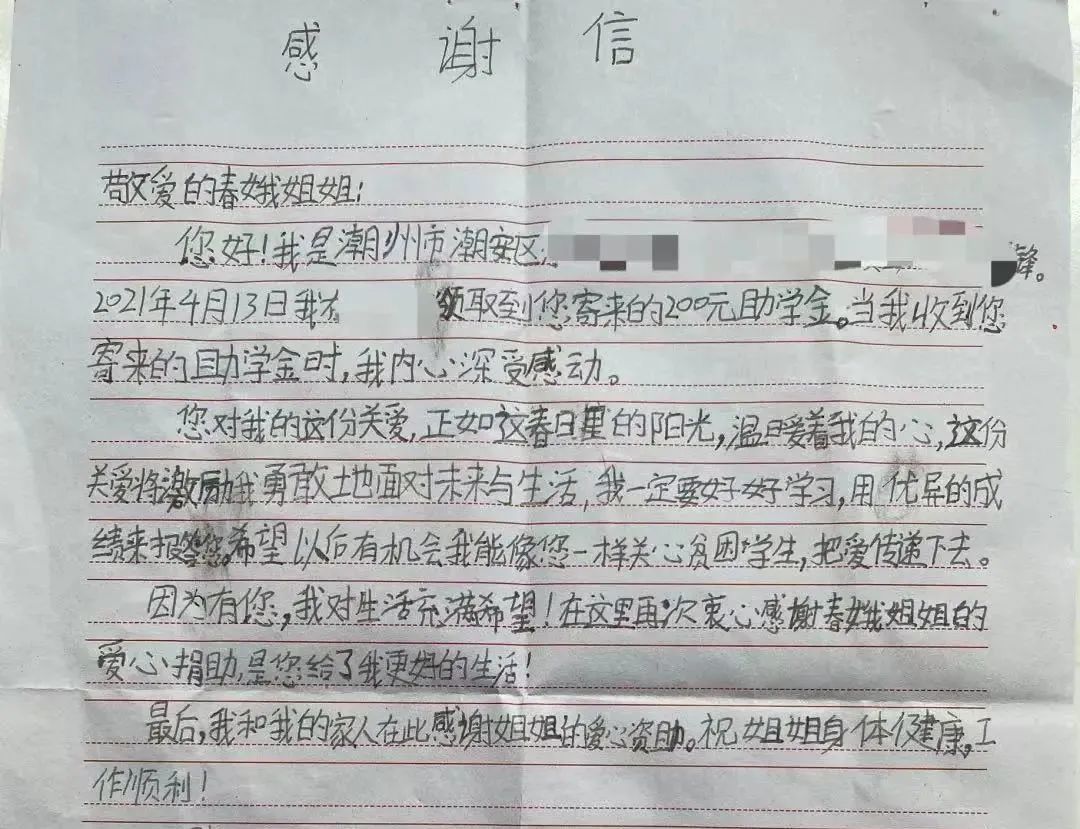 感谢信
敬爱的春娥姐姐:
您好!我是潮州市潮安区 锋。
2021年4月13日我在 领取到您寄来的200元助学金。当我收到您
寄来的助学金时,我内心深受感动。
您对我的这份关爱,正如这春日里的阳光,温暖着我的心,这份
关爱将激励我勇敢土地面对未来与生活,我一定要好好学习,用优异的成
绩来报答您。希望以后有机会我能像您一样关心贫困学生,把爱传递下去。
因为有您,我对生活充满希望!在这里再次衷心感谢春娥姐姐的
爱心捐助,是您给了我更好的生活!
最后,我和我的家人在此感谢姐姐的爱心资助。祝姐姐身体健康,工
作顺利!